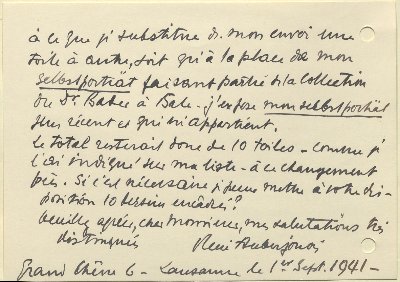 à ce que je substitue ds. mon envoi une
toile à autre, soit qu'à la place de mon
selbstporträt faisant partie de la Collection
du Dr Bader à Bale - j'expose mon selbstporträt
plus récent et qui m'appartient.
Le total resterait donc de 10 toiles - comme je
l'ai indiqué sur ma liste - à ce changement
près. Si c'est nécessaire je peux mettre à votre dis-
position 10 dessins encadrés?
Veuillez agréer, cher Monsieur, mes salutations très
distinguées René Auberjonois
Grand Chêne 6 - Lausanne le 1er Sept. 1941 -